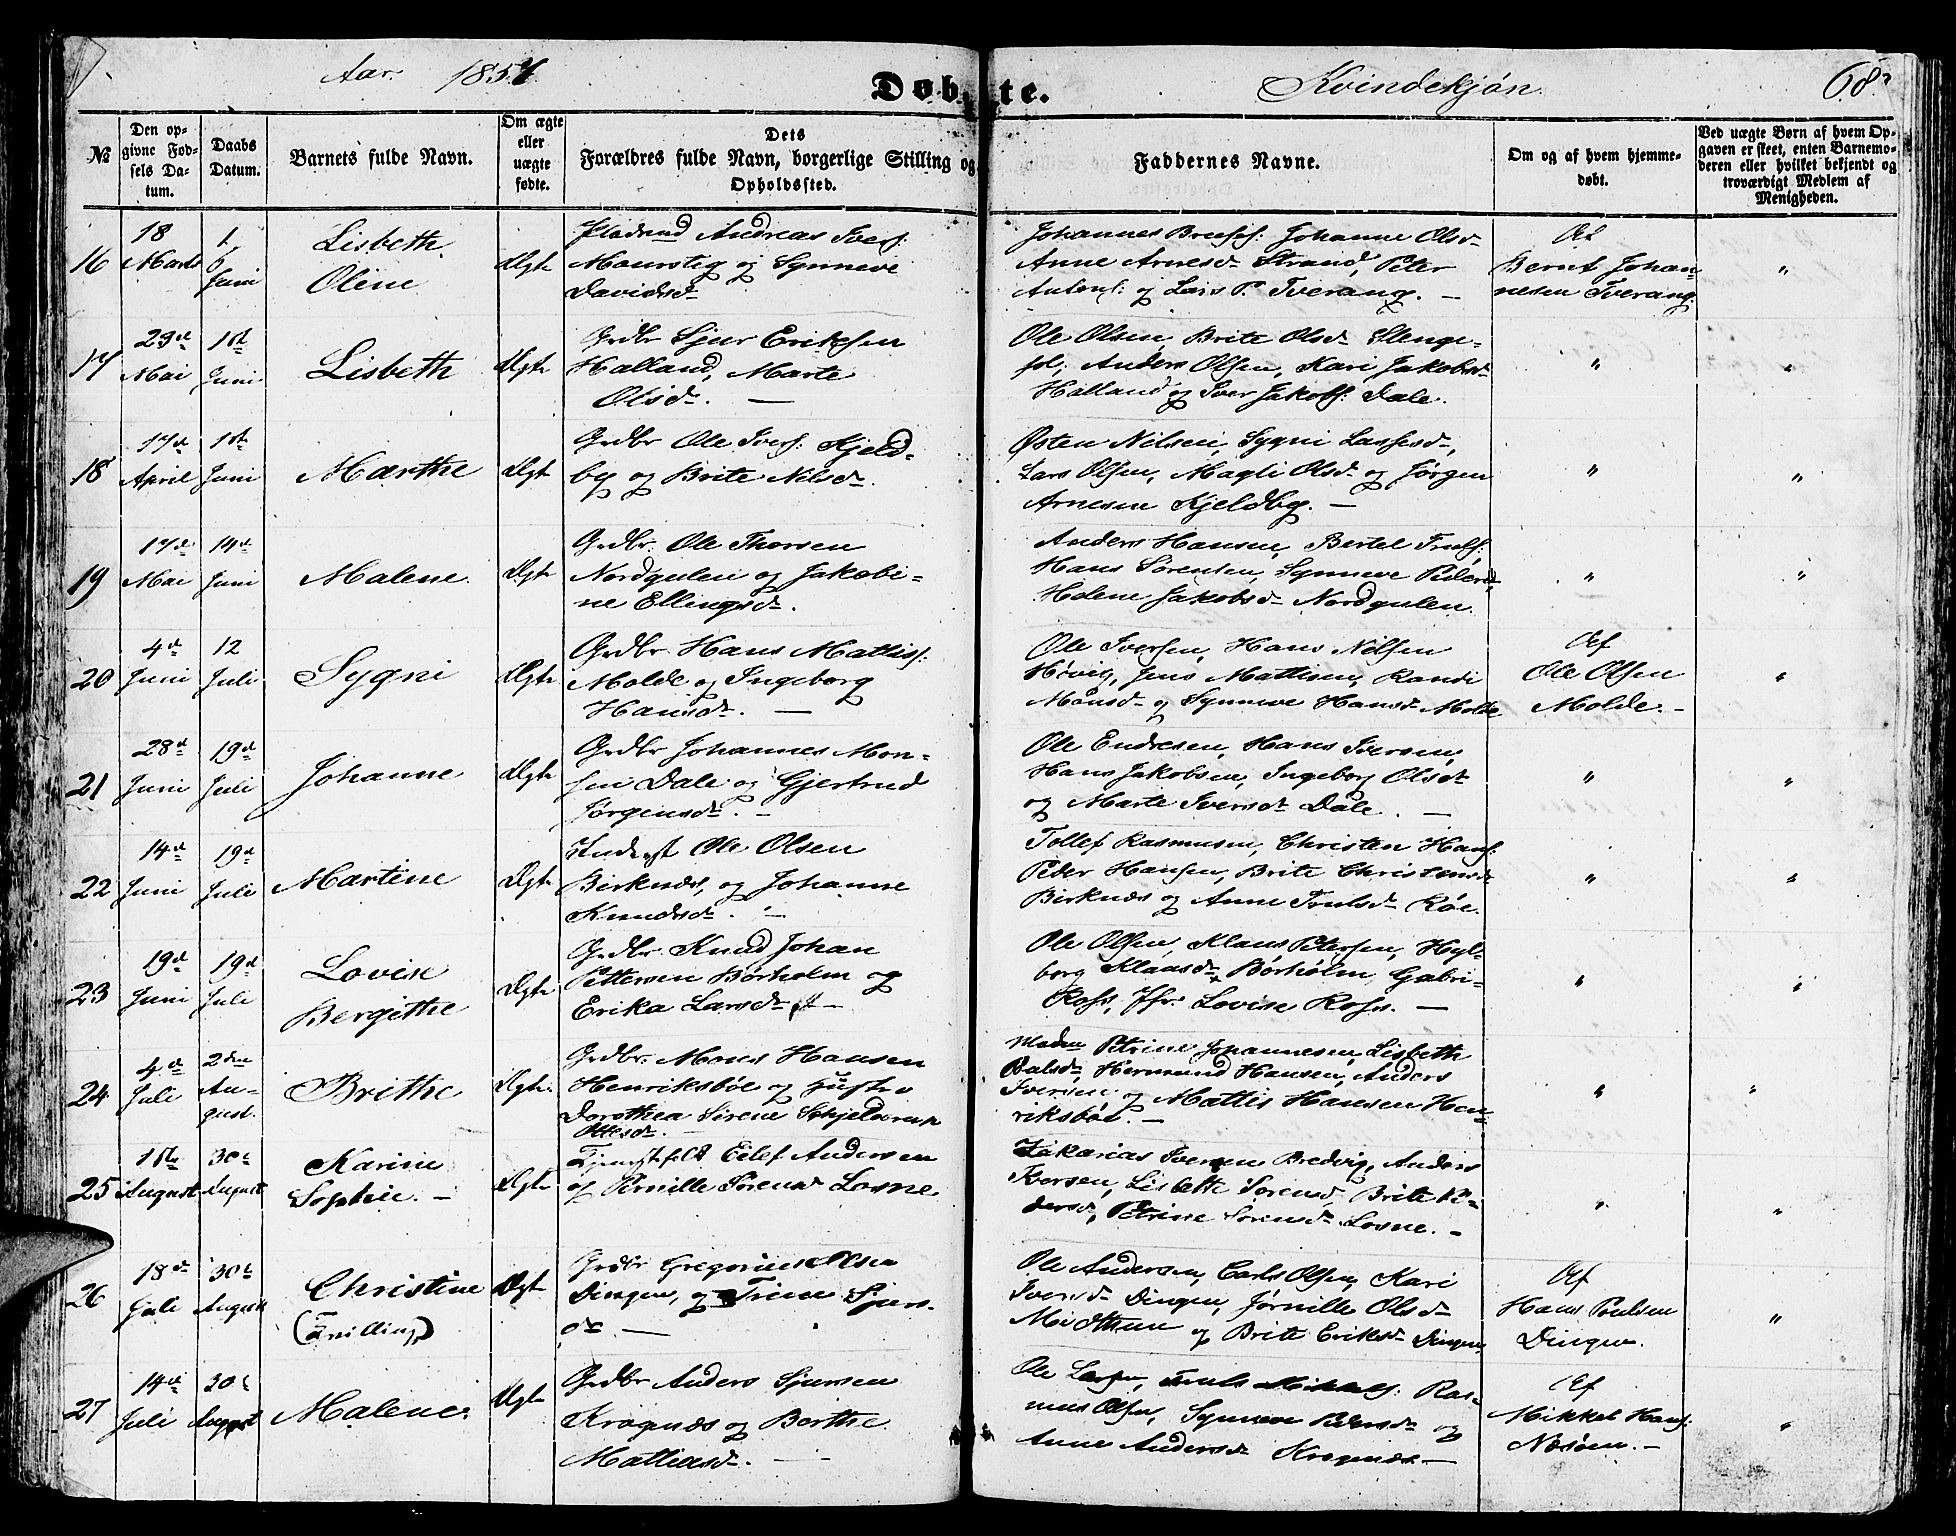 Aar 1857 Døbte. Kvindekjøn. 68
№ Den opgivne Fødsels Datum. Daabs Datum. Barnets fulde Navn. Om ægte eller uægte fødte. Dets Forældres fulde Navn, borgerlige Stilling og Opholdssted. Faddernes Navne. Om og af hvem hjemmedøbt. Ved uægte Børn af hvem Opgaven er skeet, enten Barnemoderen eller hvilket bekjendt og troværdigt Medlem af Menigheden.
16 18 Marts 1 Juni Lisbeth Oline Ægte
Andreas Ivers:
og Synneve
Davidsd.
Johanne Olsd.
Anne Arnesd. Strand, Peter
Antons: og Lars P. Tverang. —
Af
Bernt Johan-
nesen Tverang.
"
17 23d Mai 1ste Juni Lisbeth Ægte
Grdbr Sjur Eriksen
Halland, Marte
Olsd. —
Ole Olsen, Brite Olsd. Slenge-
sol, Anders Olsen, Kari Jakobsd.
Halland og Iver Jakobs: Dale.
" "
18 17d April 1ste Juni Marthe Ægte
Grdbr Ole Ivers: Kjeld-
by og Brite Nilsd.
Østen Nilsen, Sygni Lassesd.,
Lars Olsen, Magli Olsd. og Jørgen
Arnesen Kjeldby. —
" "
19 17de Mai 14de Juni Malene. Ægte
Grdbr. Ole Thorsen
Nordgulen og Jakobi-
ne Ellingsd.
Anders Hansen, Bertel Truls:
Hans Sørensen, Synneve Pedersd.,
Helene Jakobsd. Nordgulen.
" "
20 4de Juni 12 Juli Sygni Ægte
Grdbr. Hans Mattis:
Molde og Ingeborg
Hansd. —
Ole Iversen, Hans Nilsen
Høvig, Jens Mattisen, Randi
Monsd. og Synneve Hansd. Molde
Af
Ole Olsen
Molde. —
"
21 28d Juni 19d Juli Johanne Ægte
Grdbr Johannes Mon-
sen Dale og Gjertrud
Jørgensd. —
Ole Endresen, Hans Iversen,
Hans Jakobsen, Ingeborg Olsd.
og Marte Iversd. Dale. —
" "
22 14d Juni 19d Juli Martine Ægte
Ole Olsen
Birknes, og Johanne
Knudsd. —
Tollef Rasmusen, Christen Hans:
Peder Hansen, Brite Christensd.
Birknes og Anne Trulsd. Røe.
" "
23 19d Juni 19d Juli Lovise Bergithe Ægte
Grdbr. Knud Johan
Pettersen Børholm og
Erika Larsd. —
Ole Olsen, Klaus Petersen, Hyl-
borg Klausd. Børholm, Gabri-
Ross, Jfr: Lovise Ross. —
" "
24 4d Juli 2den August. Brithe Ægte.
Grdbr. Mons Hansen
Henriksbøe og Hustru
Dorothea Sirene Schjelderup
Ottesd. —
Madm Petrine Johannesen, Lisbeth
Hermund Hansen, Anders
Iversen og Mattis Hansen Hen-
riksbøe. —
" "
25 1ste August 30te August Karine Sophie. — Ægte
Tjenestefolk Eilef Andersen
og Pernille Sørensd Losne.
Zakarias Iversen Bredvig, Anders
Iversen, Lisbette Sørensd. Brite Pe-
dersd., Petrine Sørensd. Losne. —
" "
26 18de Juli 30te August Christine (Tvilling) Ægte
Grdbr Gregorius Olsen
Dingen, og Trine Sjurs-
d. —
Ole Andersen, Carls Olsen, Kari
Iversd. Dingen, Olsd
Midttun og Brite Eriksd. Dingen,
Af
Hans Poulsen
Dingen.
"
27 14de Juli 30te August Malene. Ægte
Grdbr Anders Sjursen
Kragnæs og Berthe
Mattiasd. —
Ole Larsen, Truls Mikkels: Ras-
mus Olsen, Synneve Pedersd. og
Anne Andersd. Kragnæs. —
Af
Mikkel Hans:
Nesøen. —
"